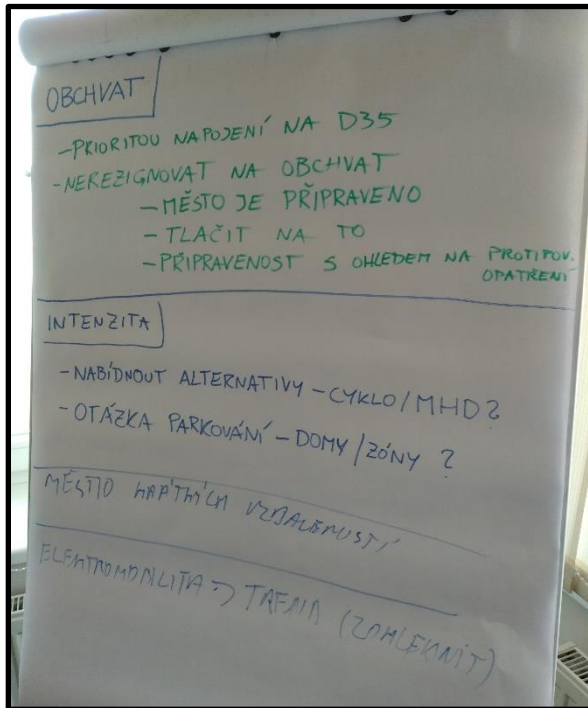 OBCHVAT
- PRIORITOU NAPOJENÍ NA D35
- NEREZIGNOVAT NA OBCHVAT
- MĚSTO JE PŘIPRAVENO
- TLAČIT NA TO
- PŘIPRAVENOST S OHLEDEM NA PROTIPOV.
OPATŘENÍ
INTENZITA
- NABÍDNOUT ALTERNATIVY - CYKLO/MHD?
- OTÁZKA PARKOVÁNÍ - DOMY/ZÓNY ?
MĚSTO KRÁTKÝCH VZDÁLENOSTÍ
ELEKTROMOBILITA → (ZOHLEDNIT)